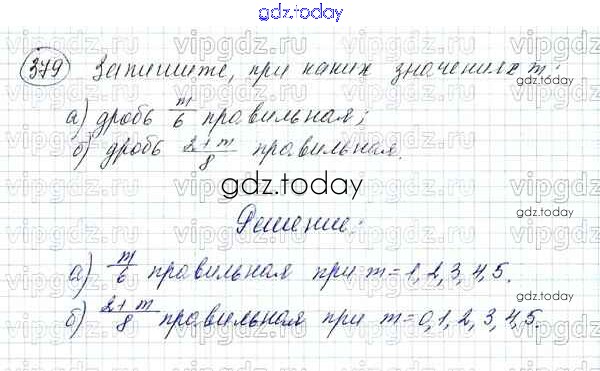 gdz.today
379 Запишите, при каких значениях m:
а) дробь m/6 правильная;
б) дробь 2+m/8 правильная.
gdz.today
Решение:
а) m/6 правильная при m=1,2,3,4,5.
б) 2+m/8 правильная при m=0,1,2,3,4,5.